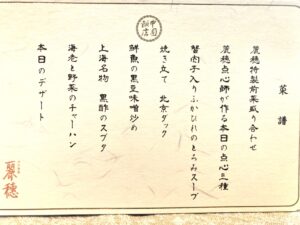 菜譜
麗穂特製前菜盛り合わせ
麗穂点心師が作る本日の点心三種
蟹肉子入りふかひれのとろみスープ
焼き立て 北京ダック
鮮魚の黒豆味噌炒め
上海名物 黒酢のスブタ
海老と野菜のチャーハン
本日のデザート
麗穂